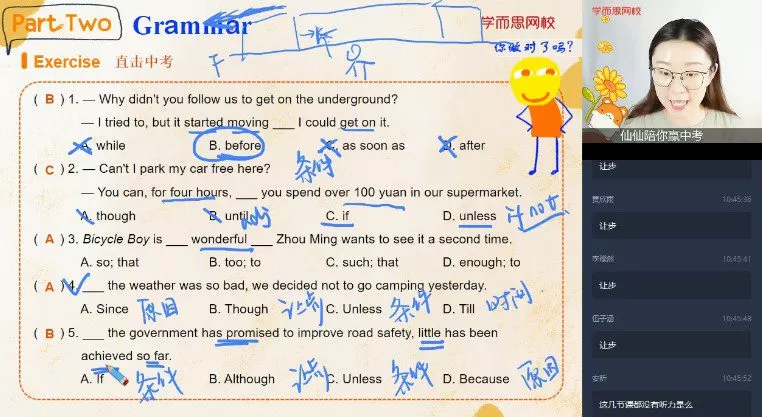 Part Two
Grammar
学而思网校
你做对了吗?
Exercise 直击中考
( B ) 1. — Why didn't you follow us to get on the underground?
— I tried to, but it started moving ___ I could get on it.
A. while B. before C. as soon as D. after
条件
( C ) 2. — Can't I park my car free here?
— You can, for four hours, ___ you spend over 100 yuan in our supermarket.
A. though B. until C. if D. unless if not
adj
( A ) 3. Bicycle Boy is ___ wonderful ___ Zhou Ming wants to see it a second time.
A. so; that B. too; to C. such; that D. enough; to
( A ) 4. ___ the weather was so bad, we decided not to go camping yesterday.
A. Since 原因 B. Though 让步 C. Unless 条件 D. Till 时间
( B ) 5. ___ the government has promised to improve road safety, little has been
achieved so far.
A. If 条件 B. Although 让步 C. Unless 条件 D. Because 原因
学而思网校
仙仙陪你赢中考
让步
10:45:36
让步
10:45:41
让步
伍子涵 10:45:48
让步
安昕 10:45:52
这几节课都没有听力是么